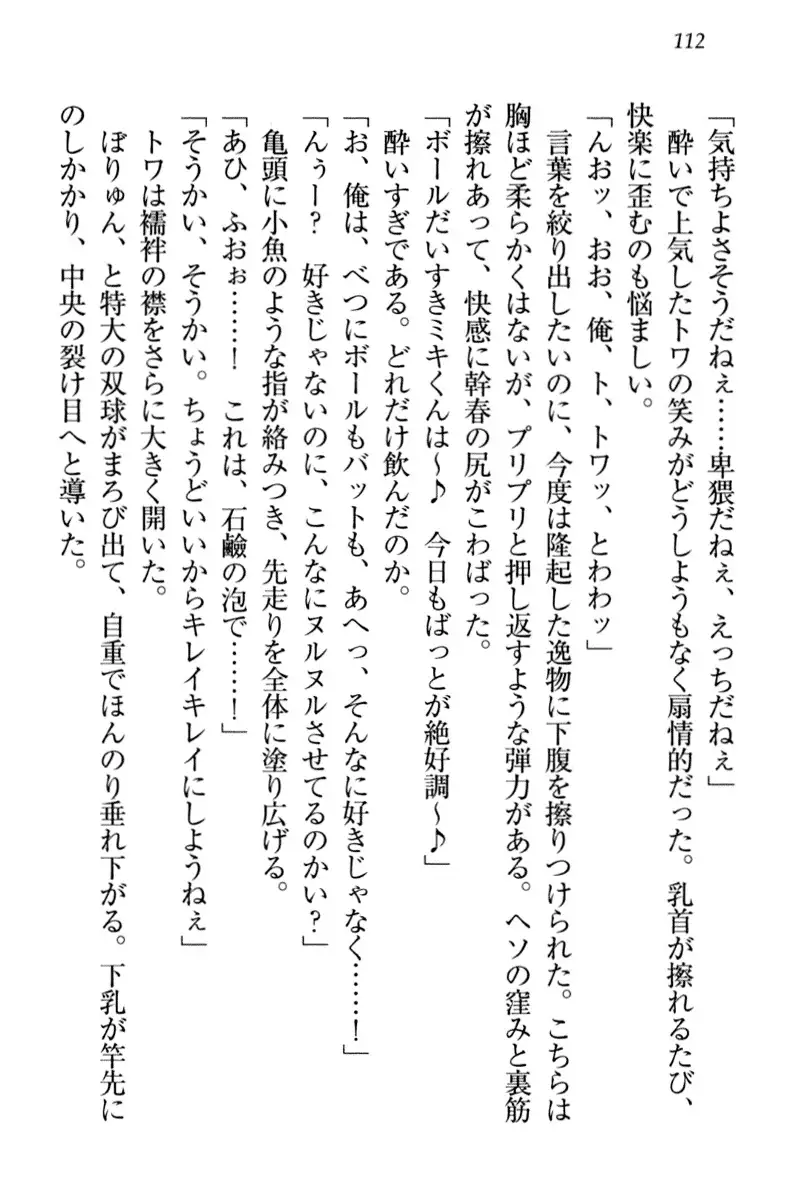 112
「気持ちよさそうだねぇ……卑猥だねぇ、えっちだねぇ」
酔いで上気したトワの笑みがどうしようもなく扇情的だった。乳首が擦れるたび、
快楽に歪むのも悩ましい。
「んおッ、おお、俺、ト、トワッ、とわわッ」
言葉を絞り出したいのに、今度は隆起した逸物に下腹を擦りつけられた。こちらは
胸ほど柔らかくはないが、プリプリと押し返すような弾力がある。ヘソの窪みと裏筋
が擦れあって、快感に幹春の尻がこわばった。
「ボールだいすきミキくんは〜♪　今日もばっとが絶好調〜♪」
酔いすぎである。どれだけ飲んだのか。
「お、俺は、べつにボールもバットも、あへっ、そんなに好きじゃなく……！」
「んぅー？　好きじゃないのに、こんなにヌルヌルさせてるのかい？」
亀頭に小魚のような指が絡みつき、先走りを全体に塗り広げる。
「あひ、ふおぉ……！　これは、石鹼の泡で……！」
「そうかい、そうかい。ちょうどいいからキレイキレイにしようねぇ」
トワは襦袢の襟をさらに大きく開いた。
ぼりゅん、と特大の双球がまろび出て、自重でほんのり垂れ下がる。下乳が竿先に
のしかかり、中央の裂け目へと導いた。